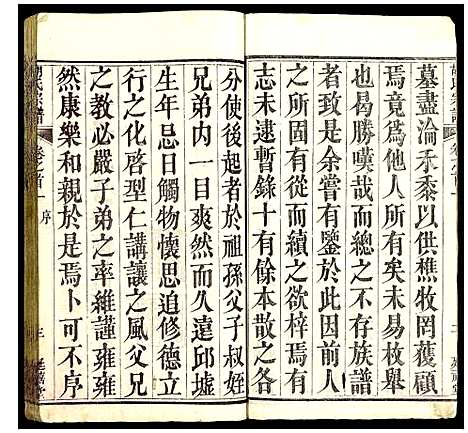 墓盡淪禾黍以供樵牧罔獲顧
焉竟爲他人所有矣未易枚舉
也曷勝嘆哉而總之不存族譜
者致是余嘗有鑒於此因前人
之所固有從而續之欲梓焉有
志未逮暫錄十有餘本散之各
分使後於祖孫父子叔姪
兄弟內一目爽然而久遠邱墟
生年忌日觸物懷思追修德立
行之化啓型仁講讓之風父兄
之教必嚴子弟之率維謹雍雍
然康樂和親於是焉卜可不序
氏宗譜
卷之首
序
三